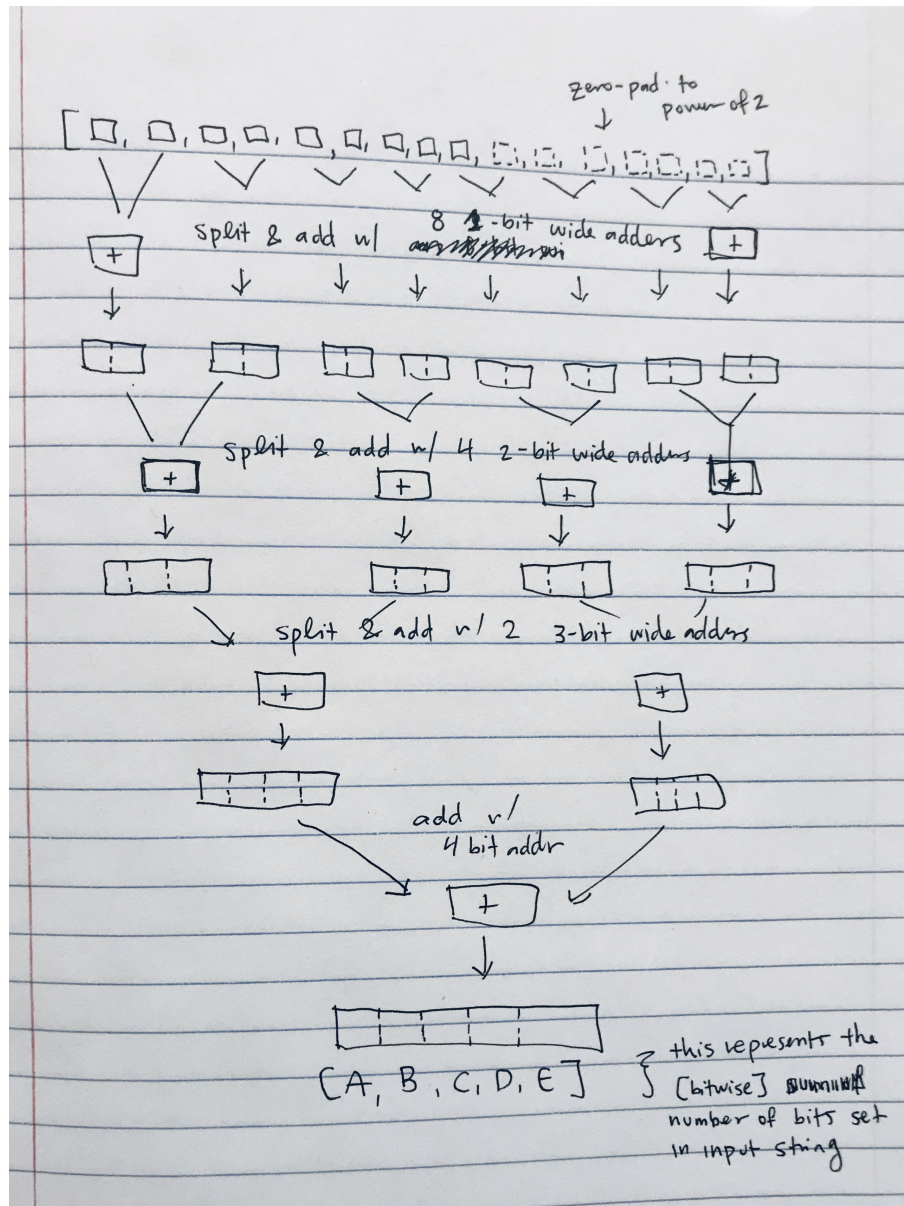 zero-pad to
power of 2
↓
[□, □, □, □, □, □, □, □, □, □, □, □, □, □, □, □]
split & add w/ 8 1-bit wide adders
+ +
split & add w/ 4 2-bit wide adders
+ + + +
split & add w/ 2 3-bit wide adders
+ +
add w/
4 bit addr
+
[A, B, C, D, E] } this represents the
[bitwise]
number of bits set
in input string